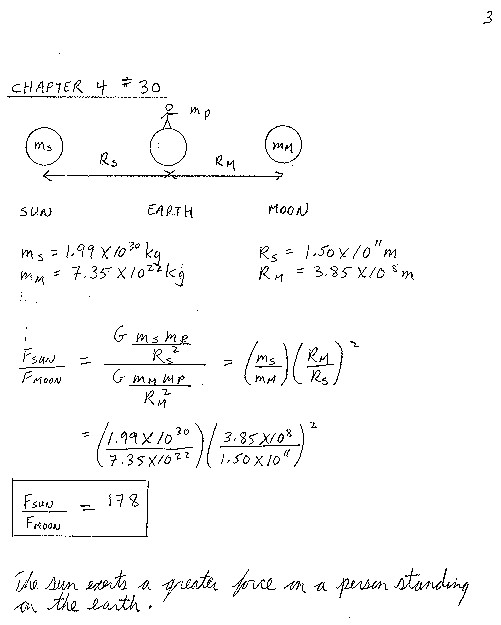 3
CHAPTER 4 # 30
m_P
m_S m_M
R_S R_M
SUN EARTH MOON
m_S = 1.99 X 10^30 kg R_S = 1.50 X 10^11 m
m_M = 7.35 X 10^22 kg R_M = 3.85 X 10^8 m
F_SUN / F_MOON = (G m_S m_P / R_S^2) / (G m_M m_P / R_M^2) = (m_S / m_M) (R_M / R_S)^2
= (1.99 X 10^30 / 7.35 X 10^22) (3.85 X 10^8 / 1.50 X 10^11)^2
F_SUN / F_MOON = 178
The sun exerts a greater force on a person standing
on the earth.